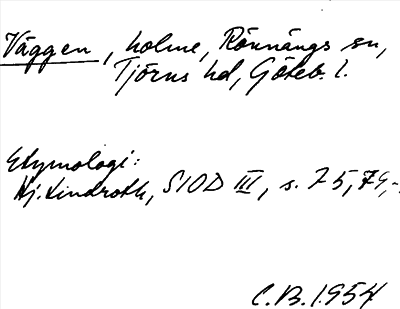 Väggen, holme, Rönnängs sn,
Tjörns hd, Göteb. l.
Etymologi:
Hj. Lindroth, SIOD III, s. 75, 79,
C.B. 1954